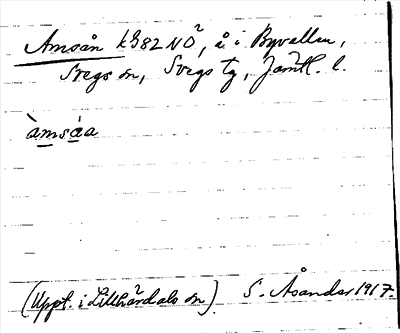 Amsån kB82NÖ², å i Byvallen,
Svegs sn, Svegs tg, Jämtl. l.
àmsáa
(Uppt. i Lillhärdals sn). S. Åsander 1917.